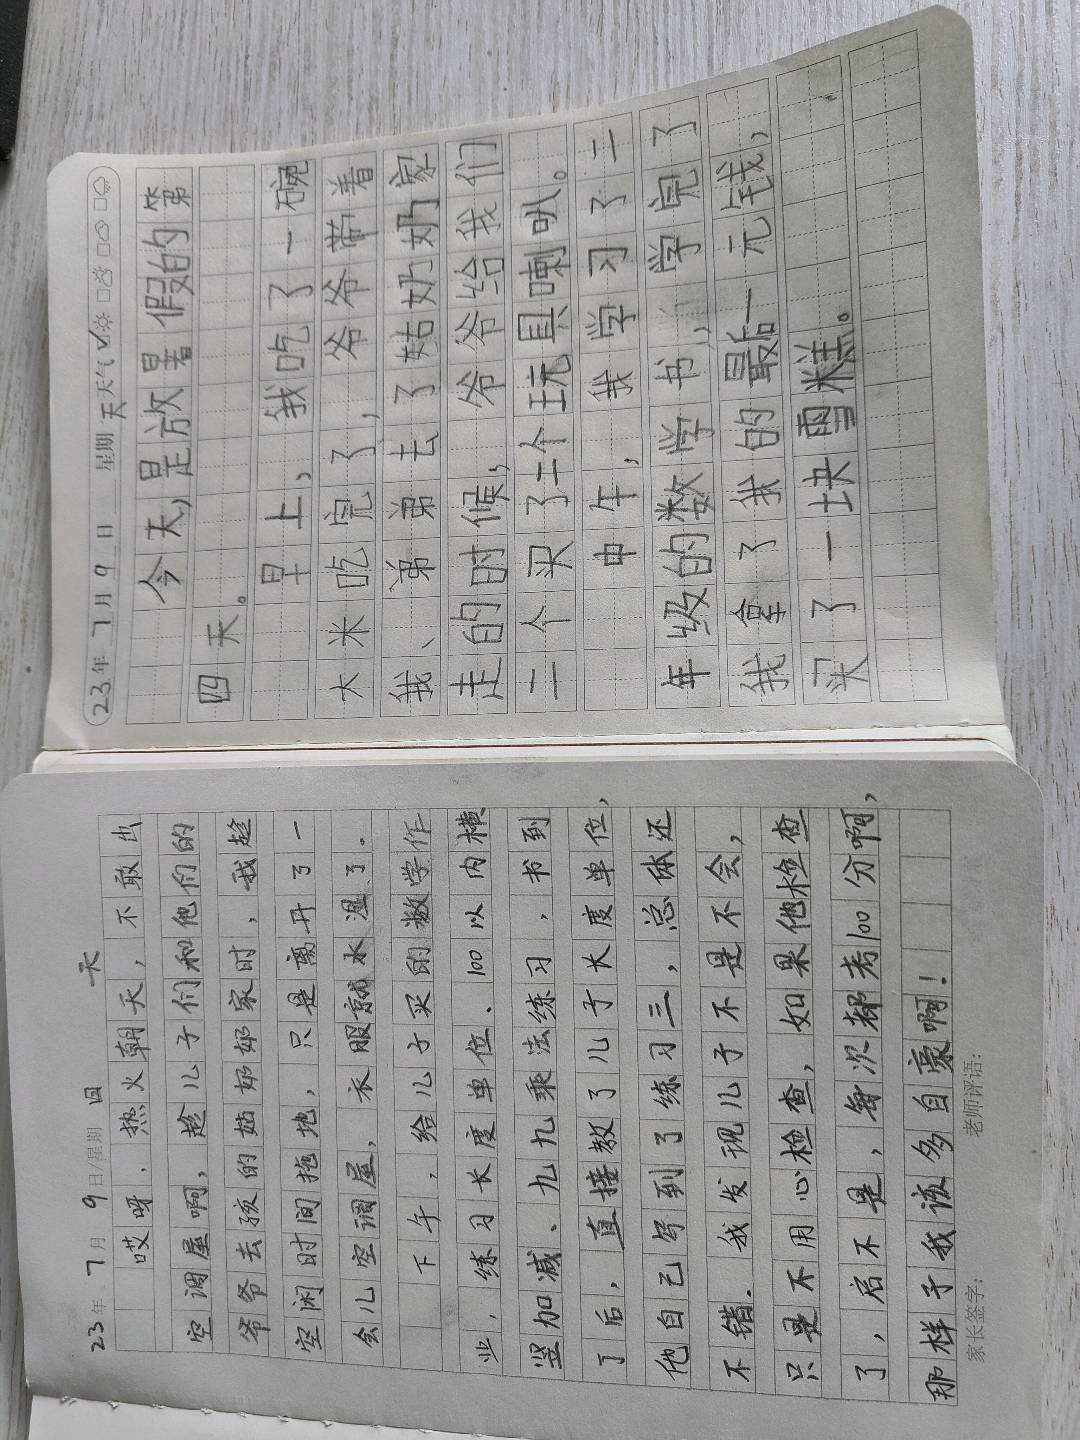 23年 7月 9日/星期 日 天
哎呀，热火朝天，不敢出
空调屋啊，趁儿子们和他们的
爷爷去孩的姑奶奶家时，我趁
空闲时间拖地，只是离开了一
会儿空调屋，衣服就水湿了。
下午，给儿子买的数学作
业，练习长度单位、100以内横
竖加减、九九乘法练习，书到
了后，直接教了儿子长度单位，
他自己写到了练习三，总体还
不错。我发现儿子不是不会，
只是不用心检查，如果他检查
了，启不是，每次都考100分啊，
那样子我该多自豪啊！
家长签字： 老师评语：
23年 7月 9日 星期 天 天气 ✓
今天，是放暑假的第
四天。
早上，我吃了一碗
大米吃完了，爷爷带着
我、弟弟去了姑奶奶家
走的时候，爷爷给我们
二个买了二个玩具喇叭。
中午，我学习了二
年级的数学书，学完了
我拿了我的最后一元钱，
买了一块雪糕。